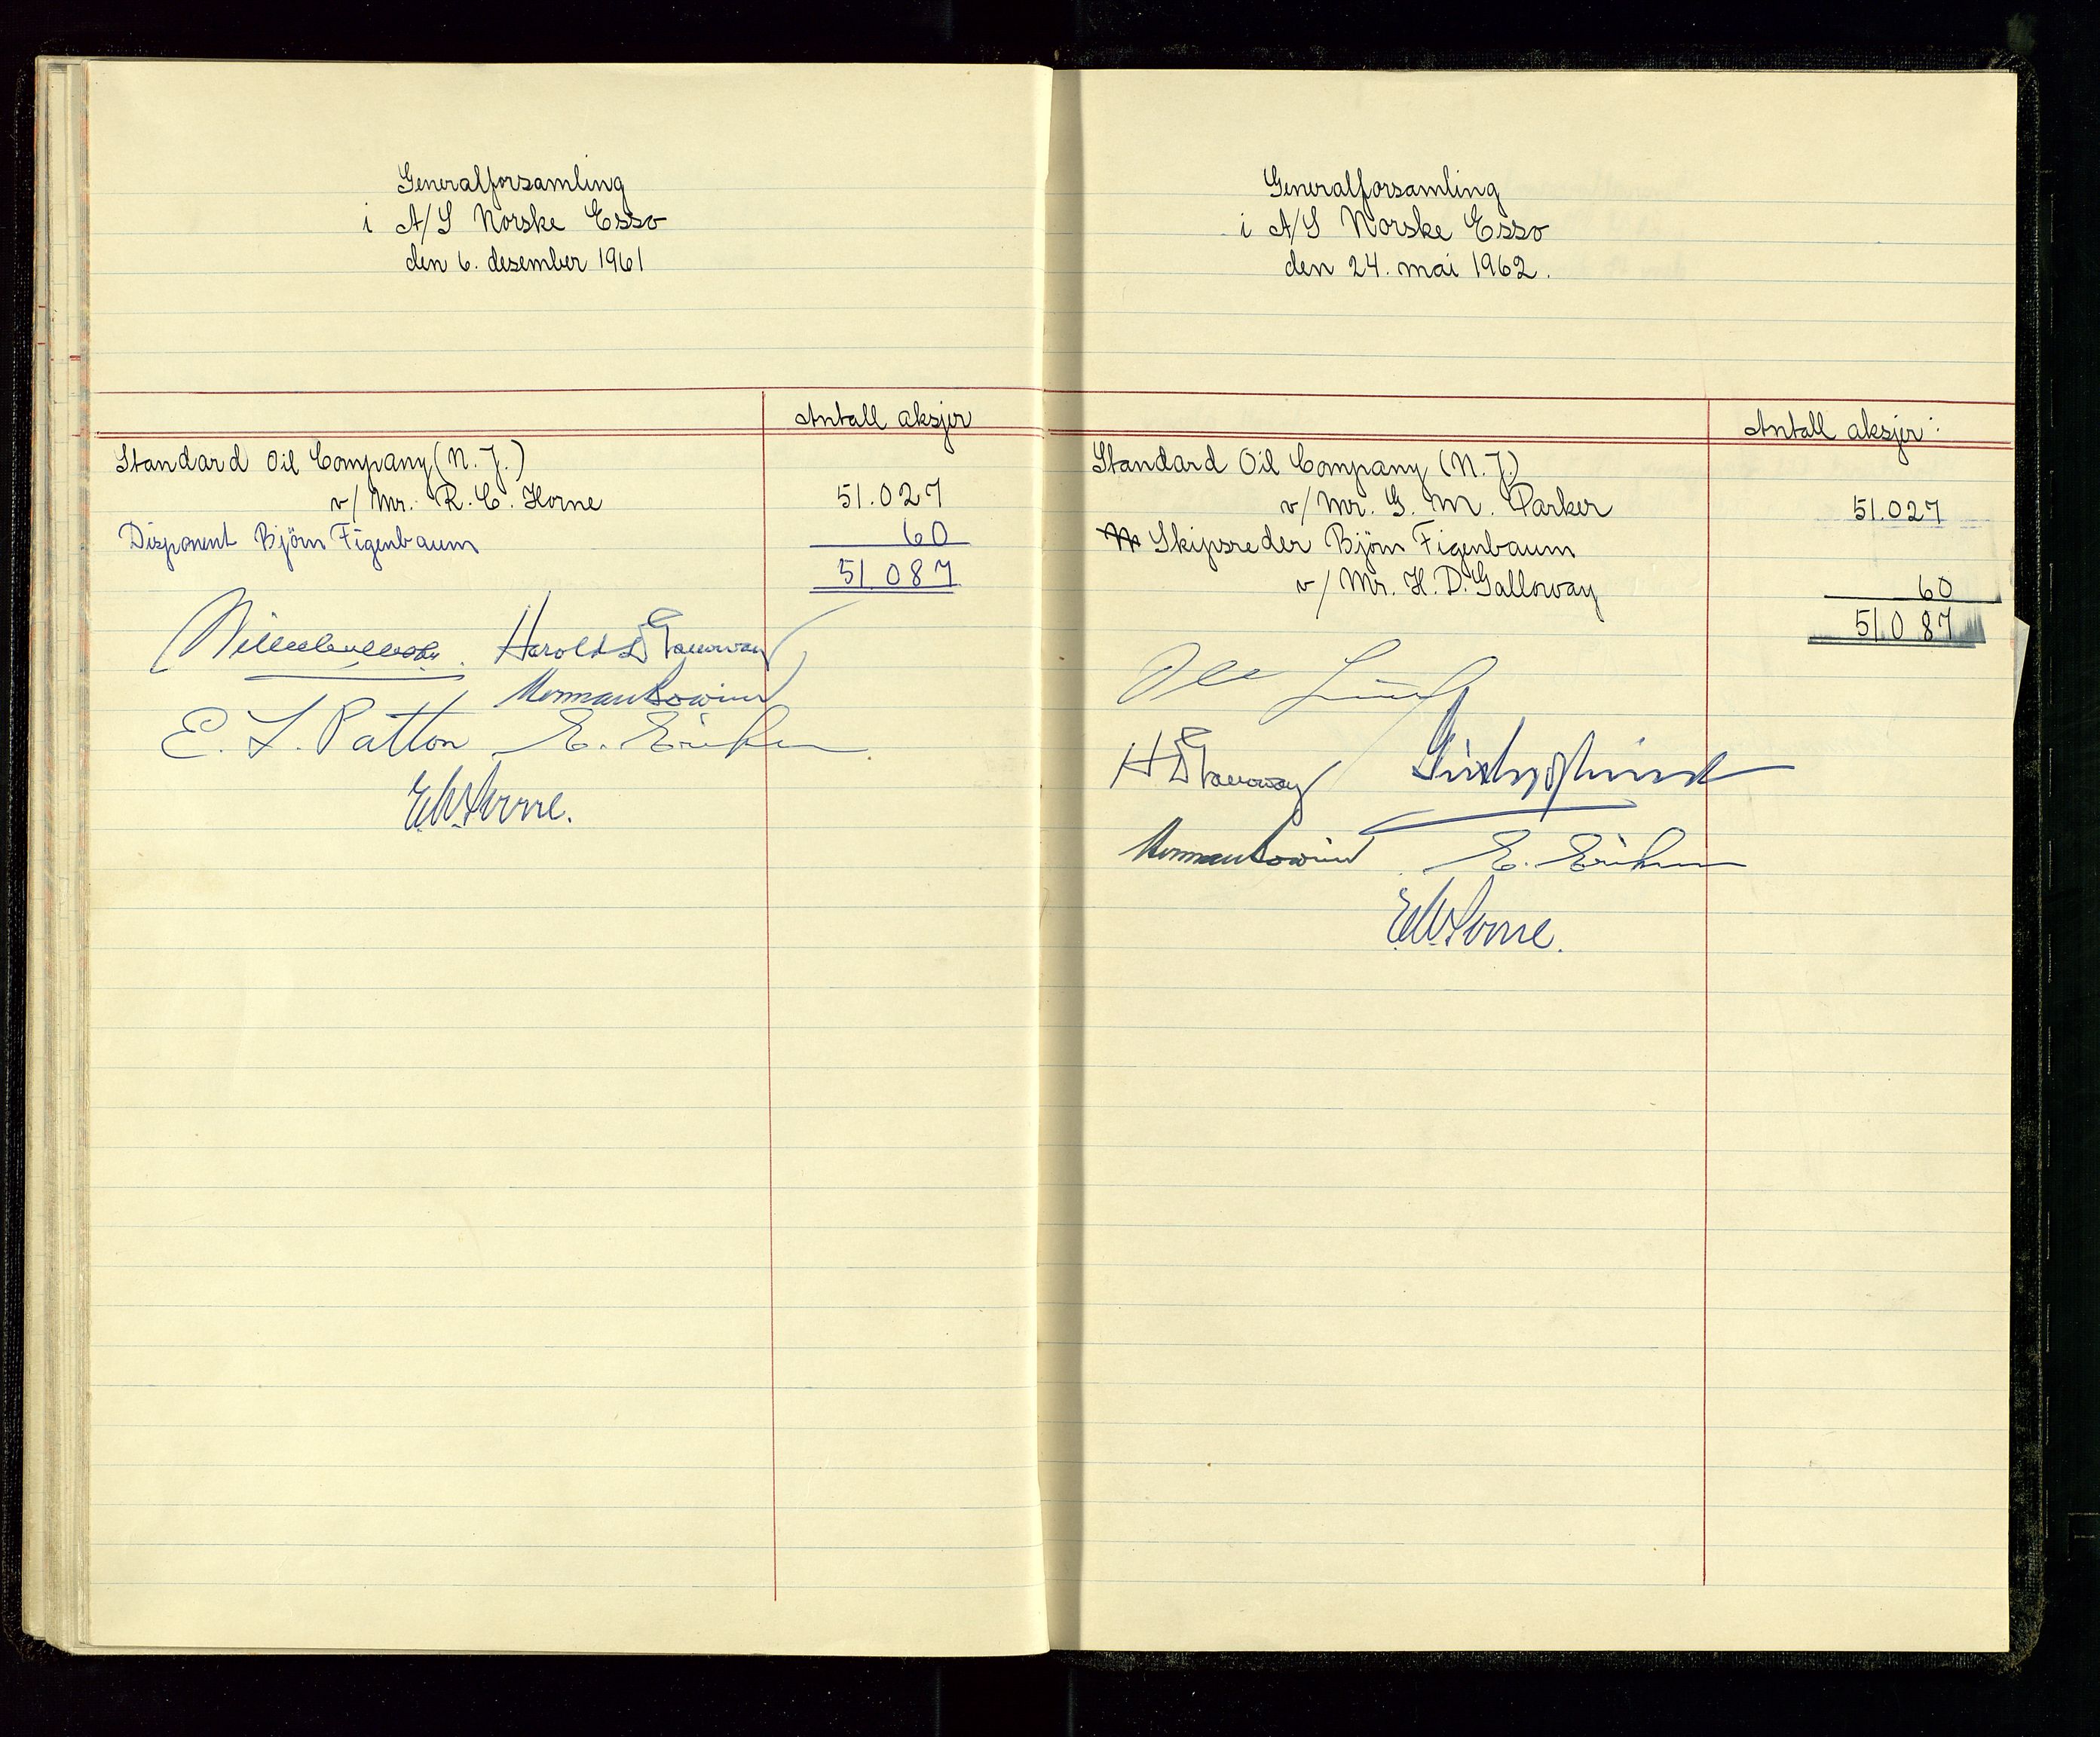 Generalforsamling
i A/S Norske Esso
den 6. desember 1961
Antall aksjer
Standard Oil Company (N. J.)
v/ Mr. R. C. Horne 51.027
Disponent Björn Figenbaum 60
51 087
Harold D Galloway
E. L. Patton E. Eriksen
Generalforsamling
i A/S Norske Esso
den 24. mai 1962.
Antall aksjer:
Standard Oil Company (N. J.)
v/ Mr. G. M. Parker 51.027
Skipsreder Björn Figenbaum
v/ Mr. H. D. Galloway 60
51 0 87
H D Galloway
E. Eriksen